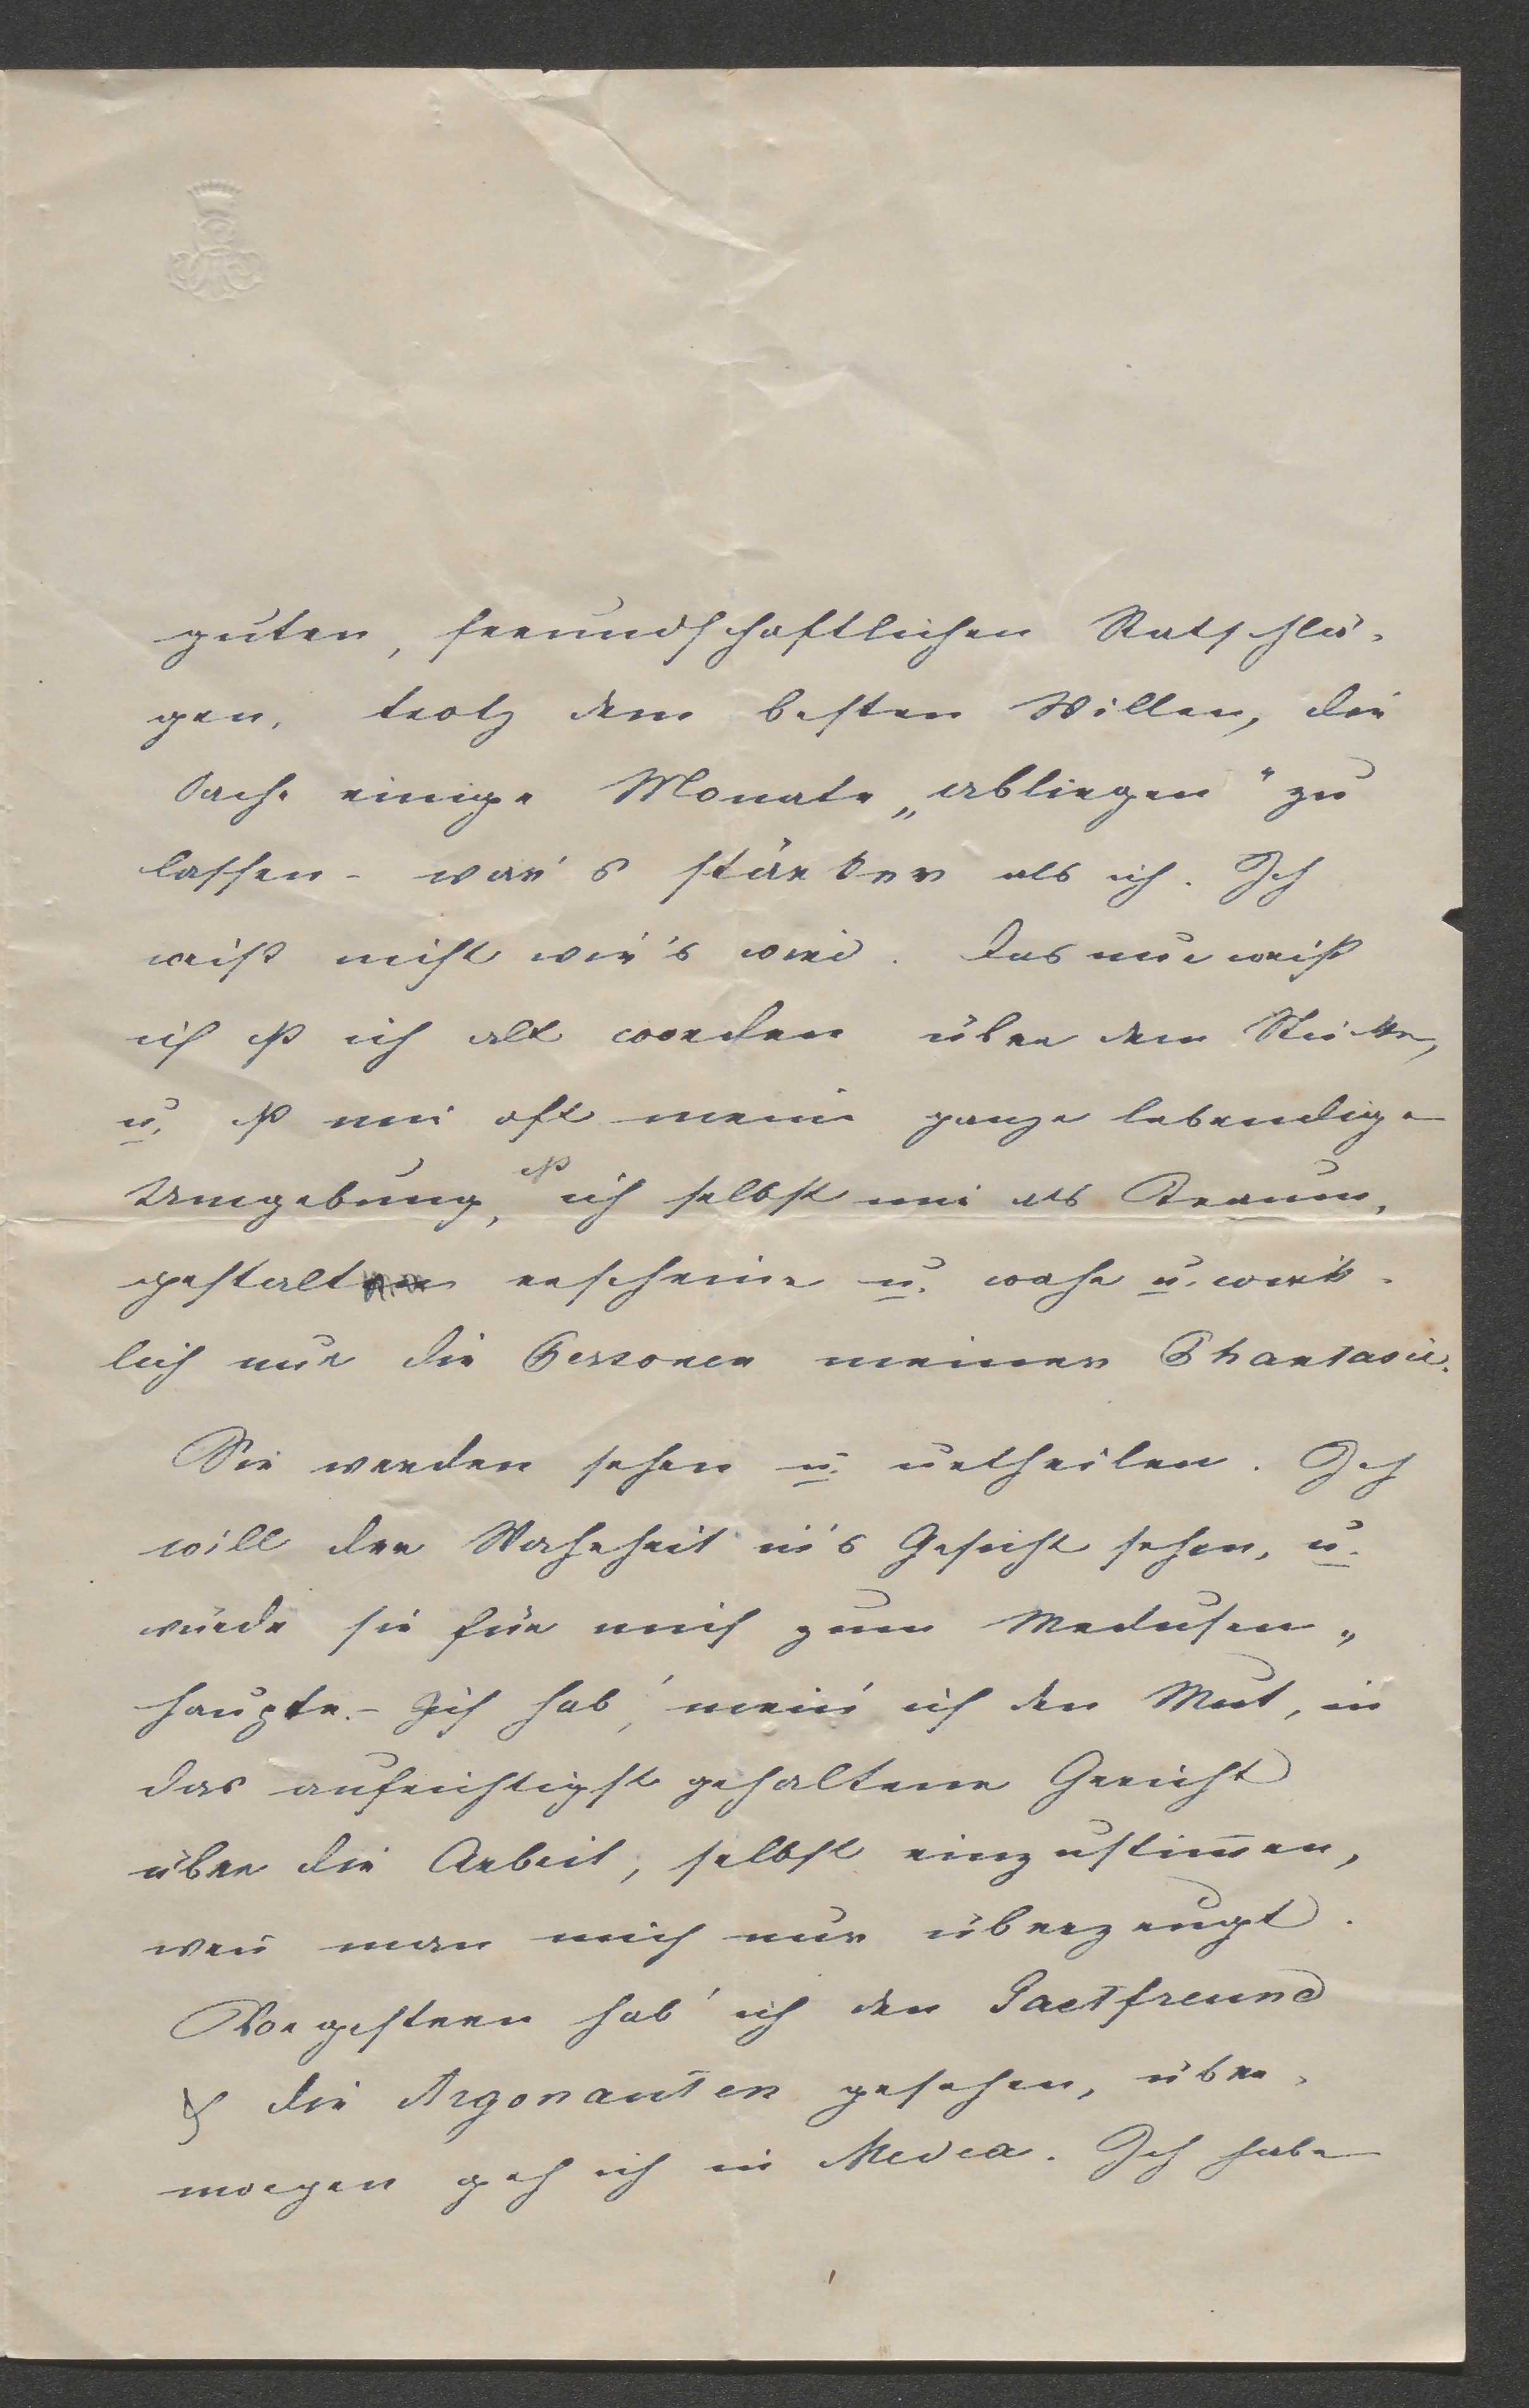 guten, freundschaftlichen Ratschlä-
gen, trotz dem besten Willen, die
Sache einige Monate „abliegen“ zu
lassen - war's stärker als ich. Ich
weiß nicht wie's wird. Das nur weiß
ich dß ich alt worden über dem Stücke,
u. dß mir oft meine ganze lebendige
Umgebung, dß ich selbst mir als Traum-
gestalt erscheine u. wahr u. wirk-
lich nur die Personen meiner Phantasie.
Sie werden sehen u. urtheilen. Ich
will der Wahrheit in's Gesicht sehen, u.
würde sie für mich zum Medusen-
haupte. - Ich hab', mein' ich den Mut, in
das aufrichtigst gehaltene Gericht
über die Arbeit, selbst einzustim̅en,
wen̅ man mich nur überzeugt.
Vorgestern hab' ich den Gastfreund
& die Argonauten gesehen, über-
morgen geh ich in Medea. Ich habe